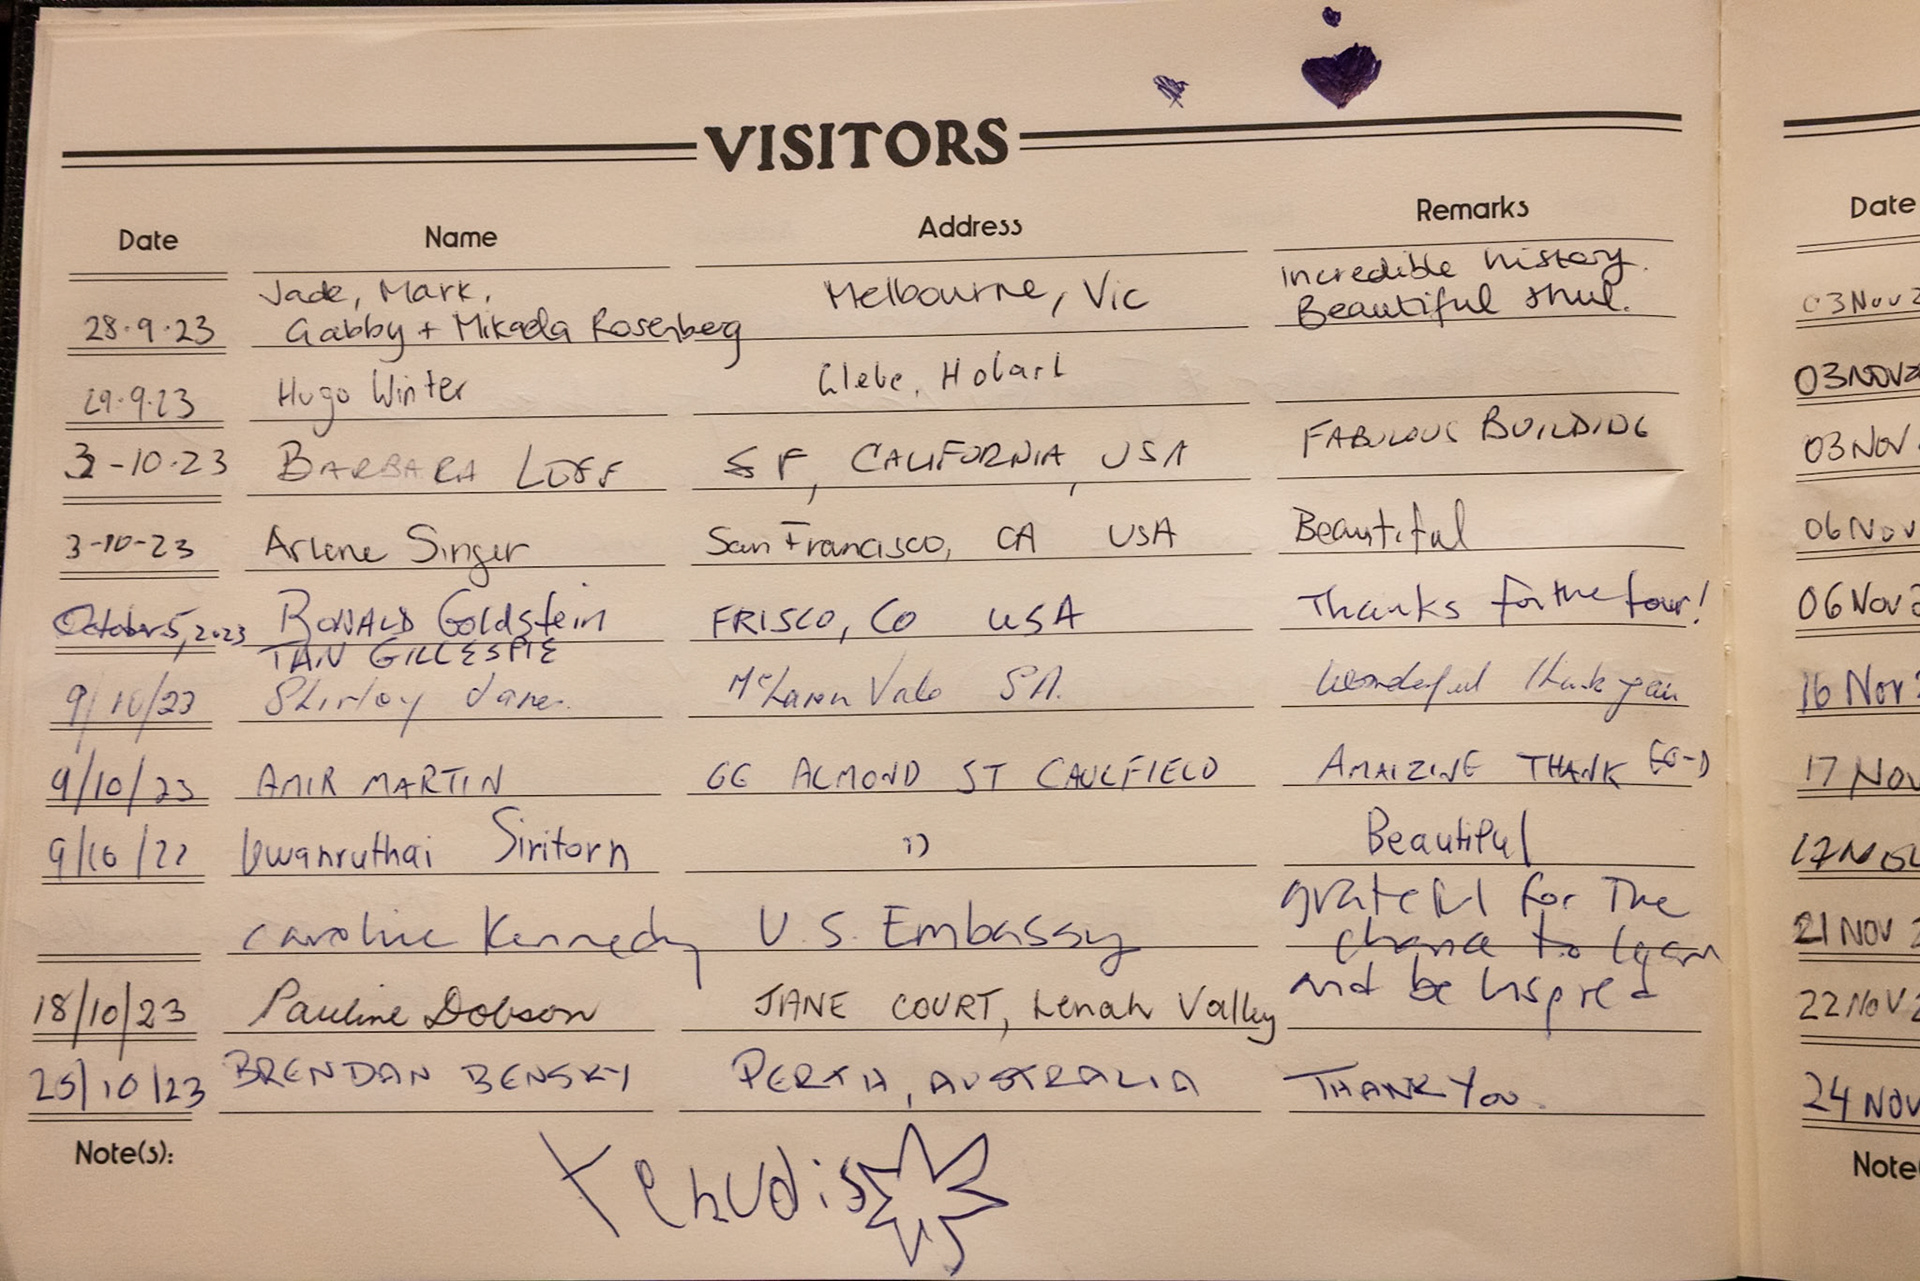 VISITORS
Date Name Address Remarks
Jade, Mark, Melbourne, Vic Incredible history.
28.9.23 Gabby + Mikaela Rosenberg Beautiful shul.
29.9.23 Hugo Winter Glebe, Hobart
3-10-23 BARBARA SF, CALIFORNIA, USA FABULOUS BUILDING
3-10-23 Arlene Singer San Francisco, CA USA Beautiful
October 5, 2023 RONALD Goldstein FRISCO, CO USA Thanks for the tour!
IAN GILLESPIE
9/10/23 Shirley McLaren Vale SA. Wonderful thank you
9/10/23 AMIR MARTIN ALMOND ST CAULFIELD AMAIZING THANK
9/10/23 Siritorn :) Beautiful
Caroline Kennedy U.S. Embassy grateful for The
chance to learn
and be inspired
18/10/23 Pauline Dobson JANE COURT, Lenah Valley
25/10/23 BRENDAN BENSKY PERTH, AUSTRALIA THANK YOU.
Note(s):
Yehudis
Date
03 Nov 2
03 NOV 2
03 NOV
06 Nov
06 Nov 2
16 Nov 2
17 Nov
17 Nov
21 NOV 2
22 NOV 2
24 NOV
Note(